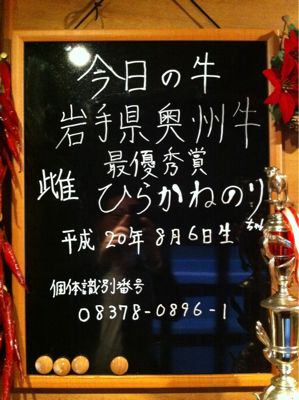 今日の牛
岩手県奥州牛
最優秀賞
雌 ひらかねのり
ちゃん
平成 20年 8月6日生
個体識別番号
08378-0896-1